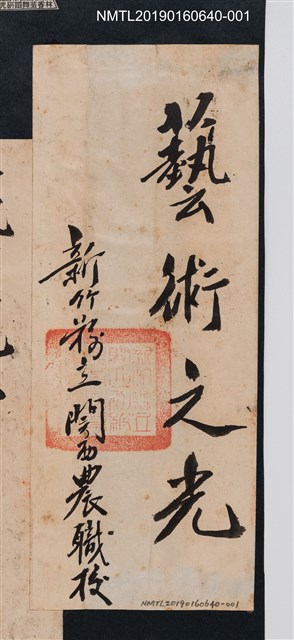 NMTL20190160640-001
藝術之光
新竹縣立關西農職校
NMTL20190160640-001